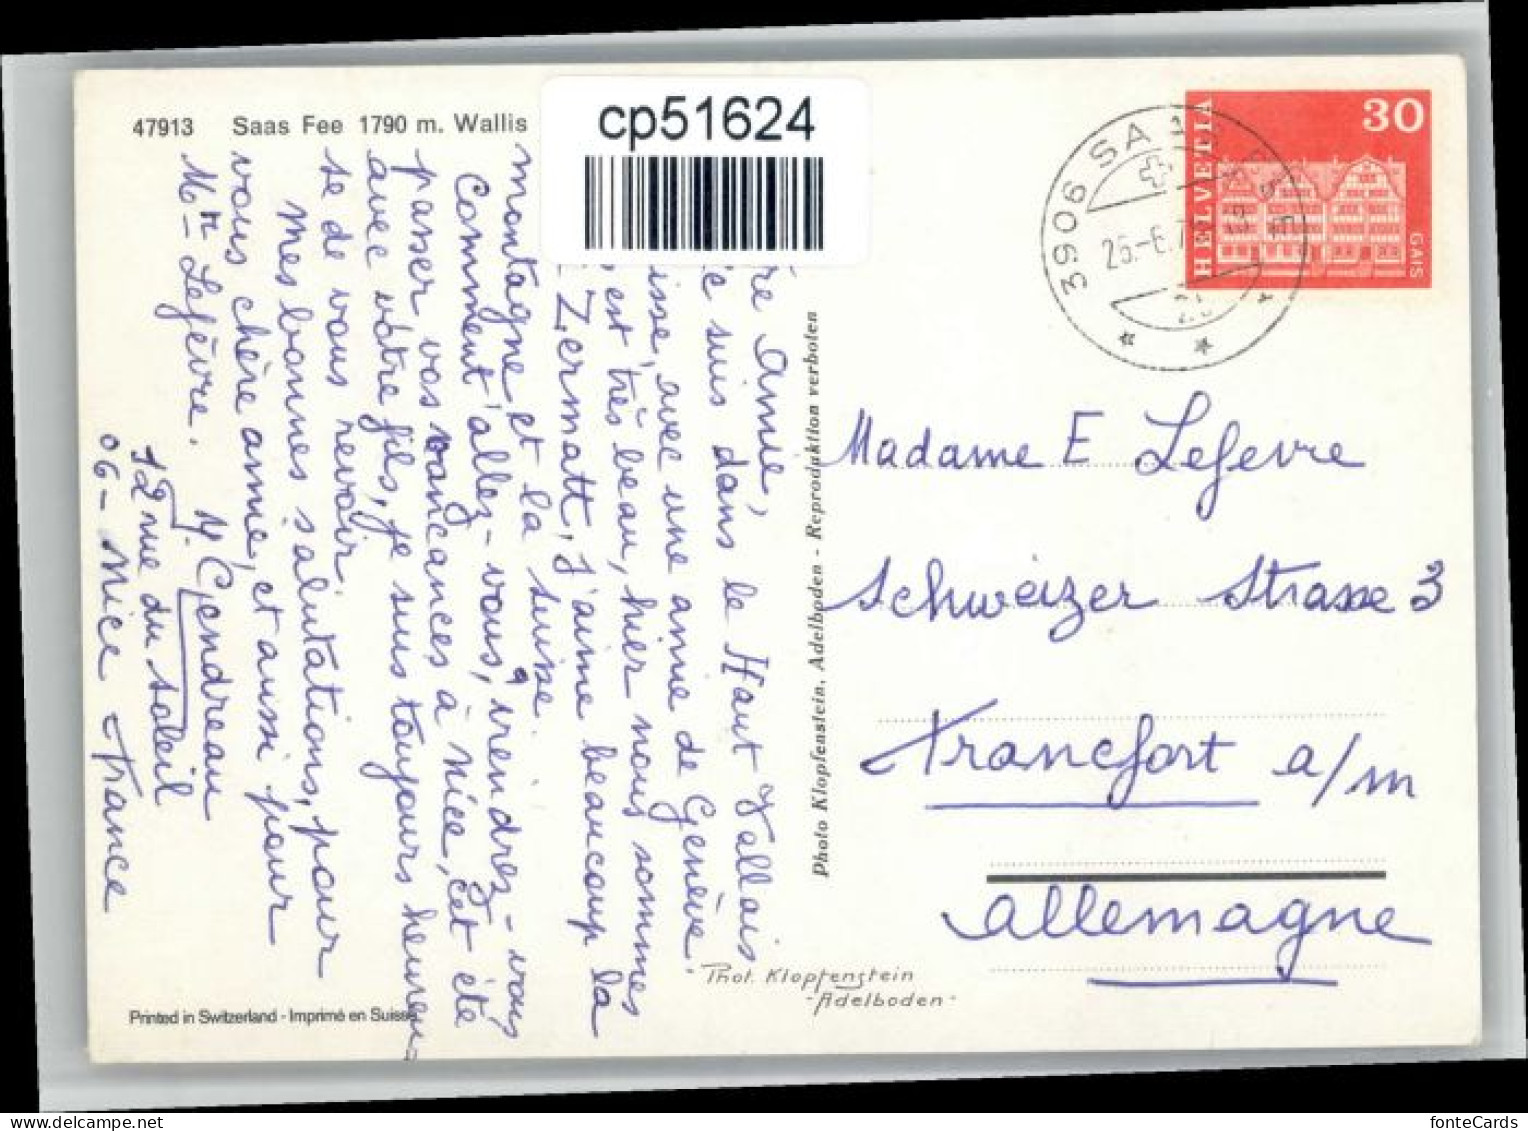 47913 Saas Fee 1790 m. Wallis
cp51624
HELVETIA
30
GAIS
3906 SAAS-FEE
25.-6.7
re amie,
suis dans le Haut Vallais
isse, avec une amie de Genève.
est très beau, hier nous sommes
Zermatt, j'aime beaucoup la
montagne et la suisse.
Comment allez-vous, viendrez-vous
passer vos vancances à nice, cet été
avec votre fils, je suis toujours heureu-
se de vous revoir.
Mes bonnes salutations, pour
vous chère amie, et aussi pour
Mr Lefèvre.
Y. Gendreau
12 rue du soleil
06-Nice France
Photo Klopfenstein, Adelboden - Reproduktion verboten
Madame E Lefevre
Schweizer Strasse 3
Francfort a/m
allemagne
Phot. Klopfenstein
-Adelboden-
Printed in Switzerland - Imprimé en Suisse
fonteCards